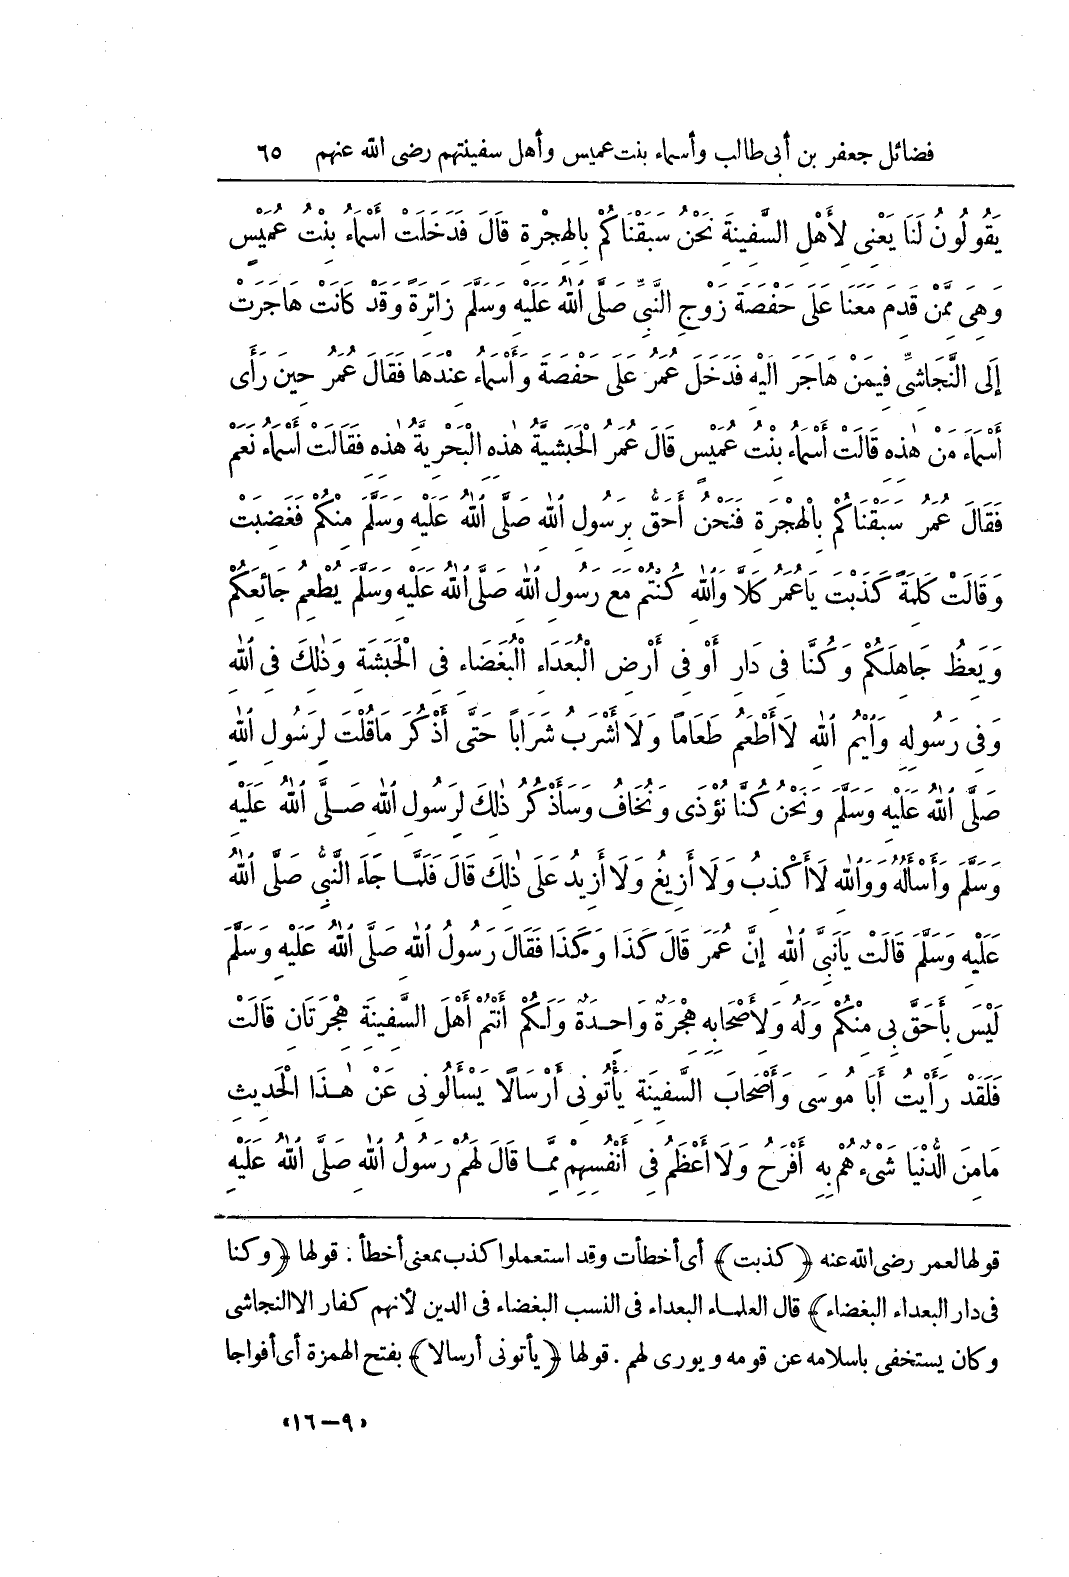 فضائل جعفر بن أبى طالب وأسماء بنت عميس وأهل سفينتهم رضى الله عنهم ٦٥
يَقُولُونَ لَنَا يَعْنِى لِأَهْلِ السَّفِينَةِ نَحْنُ سَبَقْنَاكُمْ بِالْهِجْرَةِ قَالَ فَدَخَلَتْ أَسْمَاءُ بِنْتُ عُمَيْسٍ
وَهِىَ مِمَّنْ قَدِمَ مَعَنَا عَلَى حَفْصَةَ زَوْجِ النَّبِىِّ صَلَّى ٱللهُ عَلَيْهِ وَسَلَّمَ زَائِرَةً وَقَدْ كَانَتْ هَاجَرَتْ
إِلَى النَّجَاشِىِّ فِيمَنْ هَاجَرَ الَيْهِ فَدَخَلَ عُمَرُ عَلَى حَفْصَةَ وَأَسْمَاءُ عِنْدَهَا فَقَالَ عُمَرُ حِينَ رَأَى
أَسْمَاءَ مَنْ هٰذِهِ قَالَتْ أَسْمَاءُ بِنْتُ عُمَيْسٍ قَالَ عُمَرُ الْحَبَشِيَّةُ هٰذِهِ الْبَحْرِيَّةُ هٰذِهِ فَقَالَتْ أَسْمَاءُ نَعَمْ
فَقَالَ عُمَرُ سَبَقْنَاكُمْ بِالْهِجْرَةِ فَنَحْنُ أَحَقُّ بِرَسُولِ ٱللهِ صَلَّى ٱللهُ عَلَيْهِ وَسَلَّمَ مِنْكُمْ فَغَضِبَتْ
وَقَالَتْ كَلِمَةً كَذَبْتَ يَاعُمَرُ كَلَّا وَٱللهِ كُنْتُمْ مَعَ رَسُولِ ٱللهِ صَلَّى ٱللهُ عَلَيْهِ وَسَلَّمَ يُطْعِمُ جَائِعَكُمْ
وَيَعِظُ جَاهِلَكُمْ وَكُنَّا فِى دَارِ أَوْ فِى أَرْضِ الْبُعَدَاءِ الْبُغَضَاءِ فِى الْحَبَشَةِ وَذٰلِكَ فِى ٱللهِ
وَفِى رَسُولِهِ وَٱيْمُ ٱللهِ لَا أَطْعَمُ طَعَامًا وَلَا أَشْرَبُ شَرَابًا حَتَّى أَذْكُرَ مَاقُلْتَ لِرَسُولِ ٱللهِ
صَلَّى ٱللهُ عَلَيْهِ وَسَلَّمَ وَنَحْنُ كُنَّا نُؤْذَى وَنُخَافُ وَسَأَذْكُرُ ذٰلِكَ لِرَسُولِ ٱللهِ صَلَّى ٱللهُ عَلَيْهِ
وَسَلَّمَ وَأَسْأَلُهُ وَوَٱللهِ لَا أَكْذِبُ وَلَا أَزِيغُ وَلَا أَزِيدُ عَلَى ذٰلِكَ قَالَ فَلَمَّا جَاءَ النَّبِىُّ صَلَّى ٱللهُ
عَلَيْهِ وَسَلَّمَ قَالَتْ يَانَبِىَّ ٱللهِ إِنَّ عُمَرَ قَالَ كَذَا وَكَذَا فَقَالَ رَسُولُ ٱللهِ صَلَّى ٱللهُ عَلَيْهِ وَسَلَّمَ
لَيْسَ بِأَحَقَّ بِى مِنْكُمْ وَلَهُ وَلِأَصْحَابِهِ هِجْرَةٌ وَاحِدَةٌ وَلَكُمْ أَنْتُمْ أَهْلَ السَّفِينَةِ هِجْرَتَانِ قَالَتْ
فَلَقَدْ رَأَيْتُ أَبَا مُوسَى وَأَصْحَابَ السَّفِينَةِ يَأْتُونِى أَرْسَالًا يَسْأَلُونِى عَنْ هٰذَا الْحَدِيثِ
مَامِنَ الدُّنْيَا شَىْءٌ هُمْ بِهِ أَفْرَحُ وَلَا أَعْظَمُ فِى أَنْفُسِهِمْ مِمَّا قَالَ لَهُمْ رَسُولُ ٱللهِ صَلَّى ٱللهُ عَلَيْهِ
قولها لعمر رضى الله عنه ﴿كذبت﴾ أى أخطأت وقد استعملوا كذب بمعنى أخطأ . قولها ﴿وكنا
فى دار البعداء البغضاء﴾ قال العلماء البعداء فى النسب البغضاء فى الدين لأنهم كفار الا النجاشى
وكان يستخفى باسلامه عن قومه ويورى لهم . قولها ﴿يأتونى أرسالا﴾ بفتح الهمزة أى أفواجا
«٩ – ١٦»